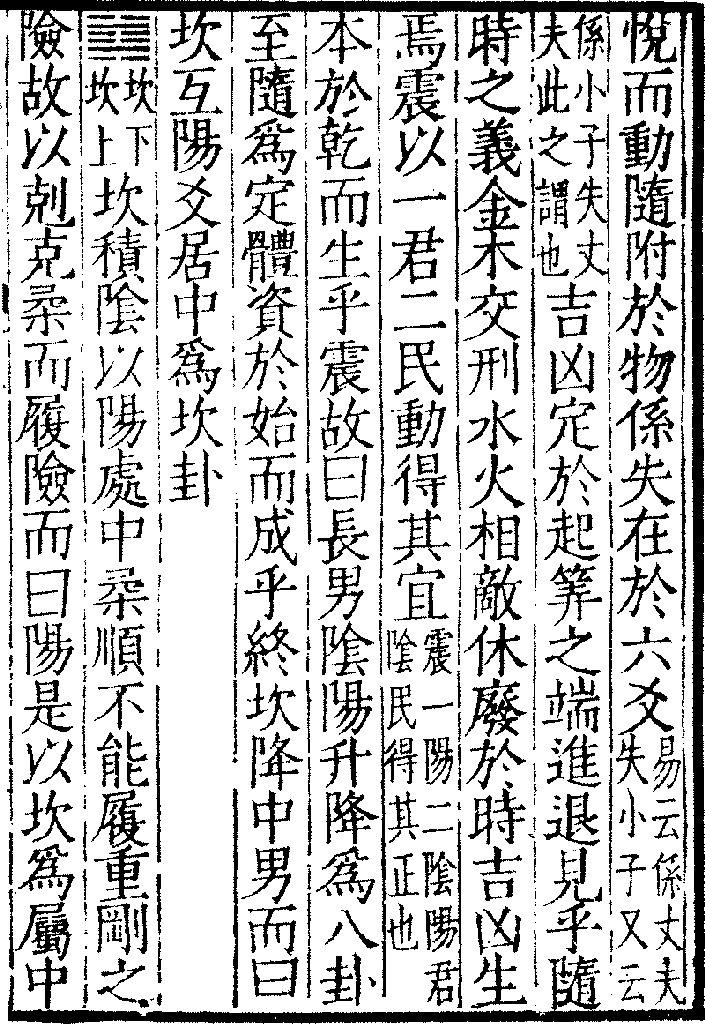 悅而動隨附於物係失在於六爻易云係丈夫失小子又云
係小子失丈夫此之謂也吉凶定於起筭之端進退見乎隨
時之義金木交刑水火相敵休廢於時吉凶生
焉震以一君二民動得其宜震一陽二陰陽君陰民得其正也
本於乾而生乎震故曰長男陰陽升降爲八卦
至隨爲定體資於始而成乎終坎降中男而曰
坎互陽爻居中爲坎卦
䷜坎下坎上坎積陰以陽處中柔順不能履重剛之
險故以剋克柔而履險而曰陽是以坎爲屬中